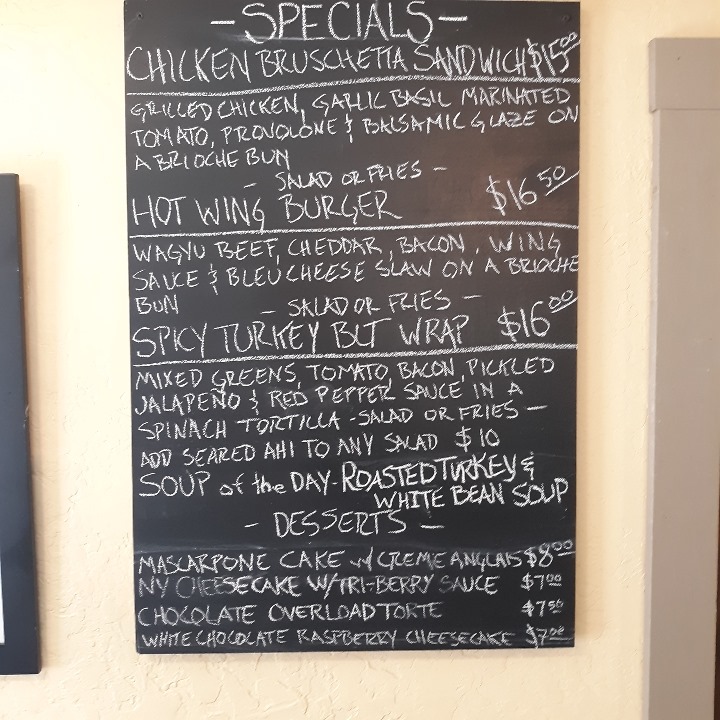 - SPECIALS -
CHICKEN BRUSCHETTA SANDWICH $15.00
GRILLED CHICKEN, GARLIC BASIL MARINATED
TOMATO, PROVOLONE & BALSAMIC GLAZE ON
A BRIOCHE BUN
- SALAD OR FRIES -
HOT WING BURGER $16.50
WAGYU BEEF, CHEDDAR, BACON, WING
SAUCE & BLEU CHEESE SLAW ON A BRIOCHE
BUN - SALAD OR FRIES -
SPICY TURKEY BLT WRAP $16.00
MIXED GREENS, TOMATO, BACON, PICKLED
JALAPEÑO & RED PEPPER SAUCE IN A
SPINACH TORTILLA - SALAD OR FRIES -
ADD SEARED AHI TO ANY SALAD $10
SOUP of the DAY - ROASTED TURKEY &
WHITE BEAN SOUP
- DESSERTS -
MASCARPONE CAKE w/ CREME ANGLAIS $8.00
NY CHEESECAKE W/ TRI-BERRY SAUCE $7.00
CHOCOLATE OVERLOAD TORTE $7.50
WHITE CHOCOLATE RASPBERRY CHEESECAKE $7.00